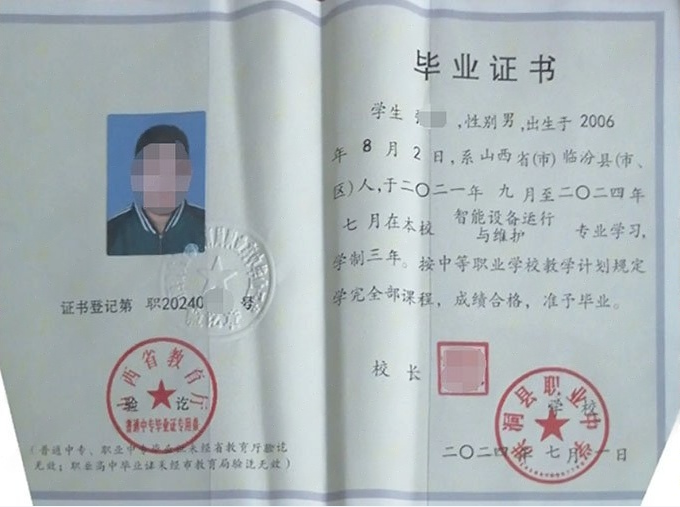 毕业证书
学生 ,性别男,出生于2006
年8月2日,系山西省(市)临汾县(市、
区)人,于二〇二一年九月至二〇二四年
七月在本校 智能设备运行与维护 专业学习,
学制三年。按中等职业学校教学计划规定
学完全部课程,成绩合格,准予毕业。
校长
学校
洪洞县职业中学
二〇二四年七月 一日
证书登记第 职20240 号
山西省教育厅
验讫
普通中专毕业证专用章
(普通中专、职业中专毕业证未经省教育厅验讫
无效;职业高中毕业证未经市教育局验讫无效)